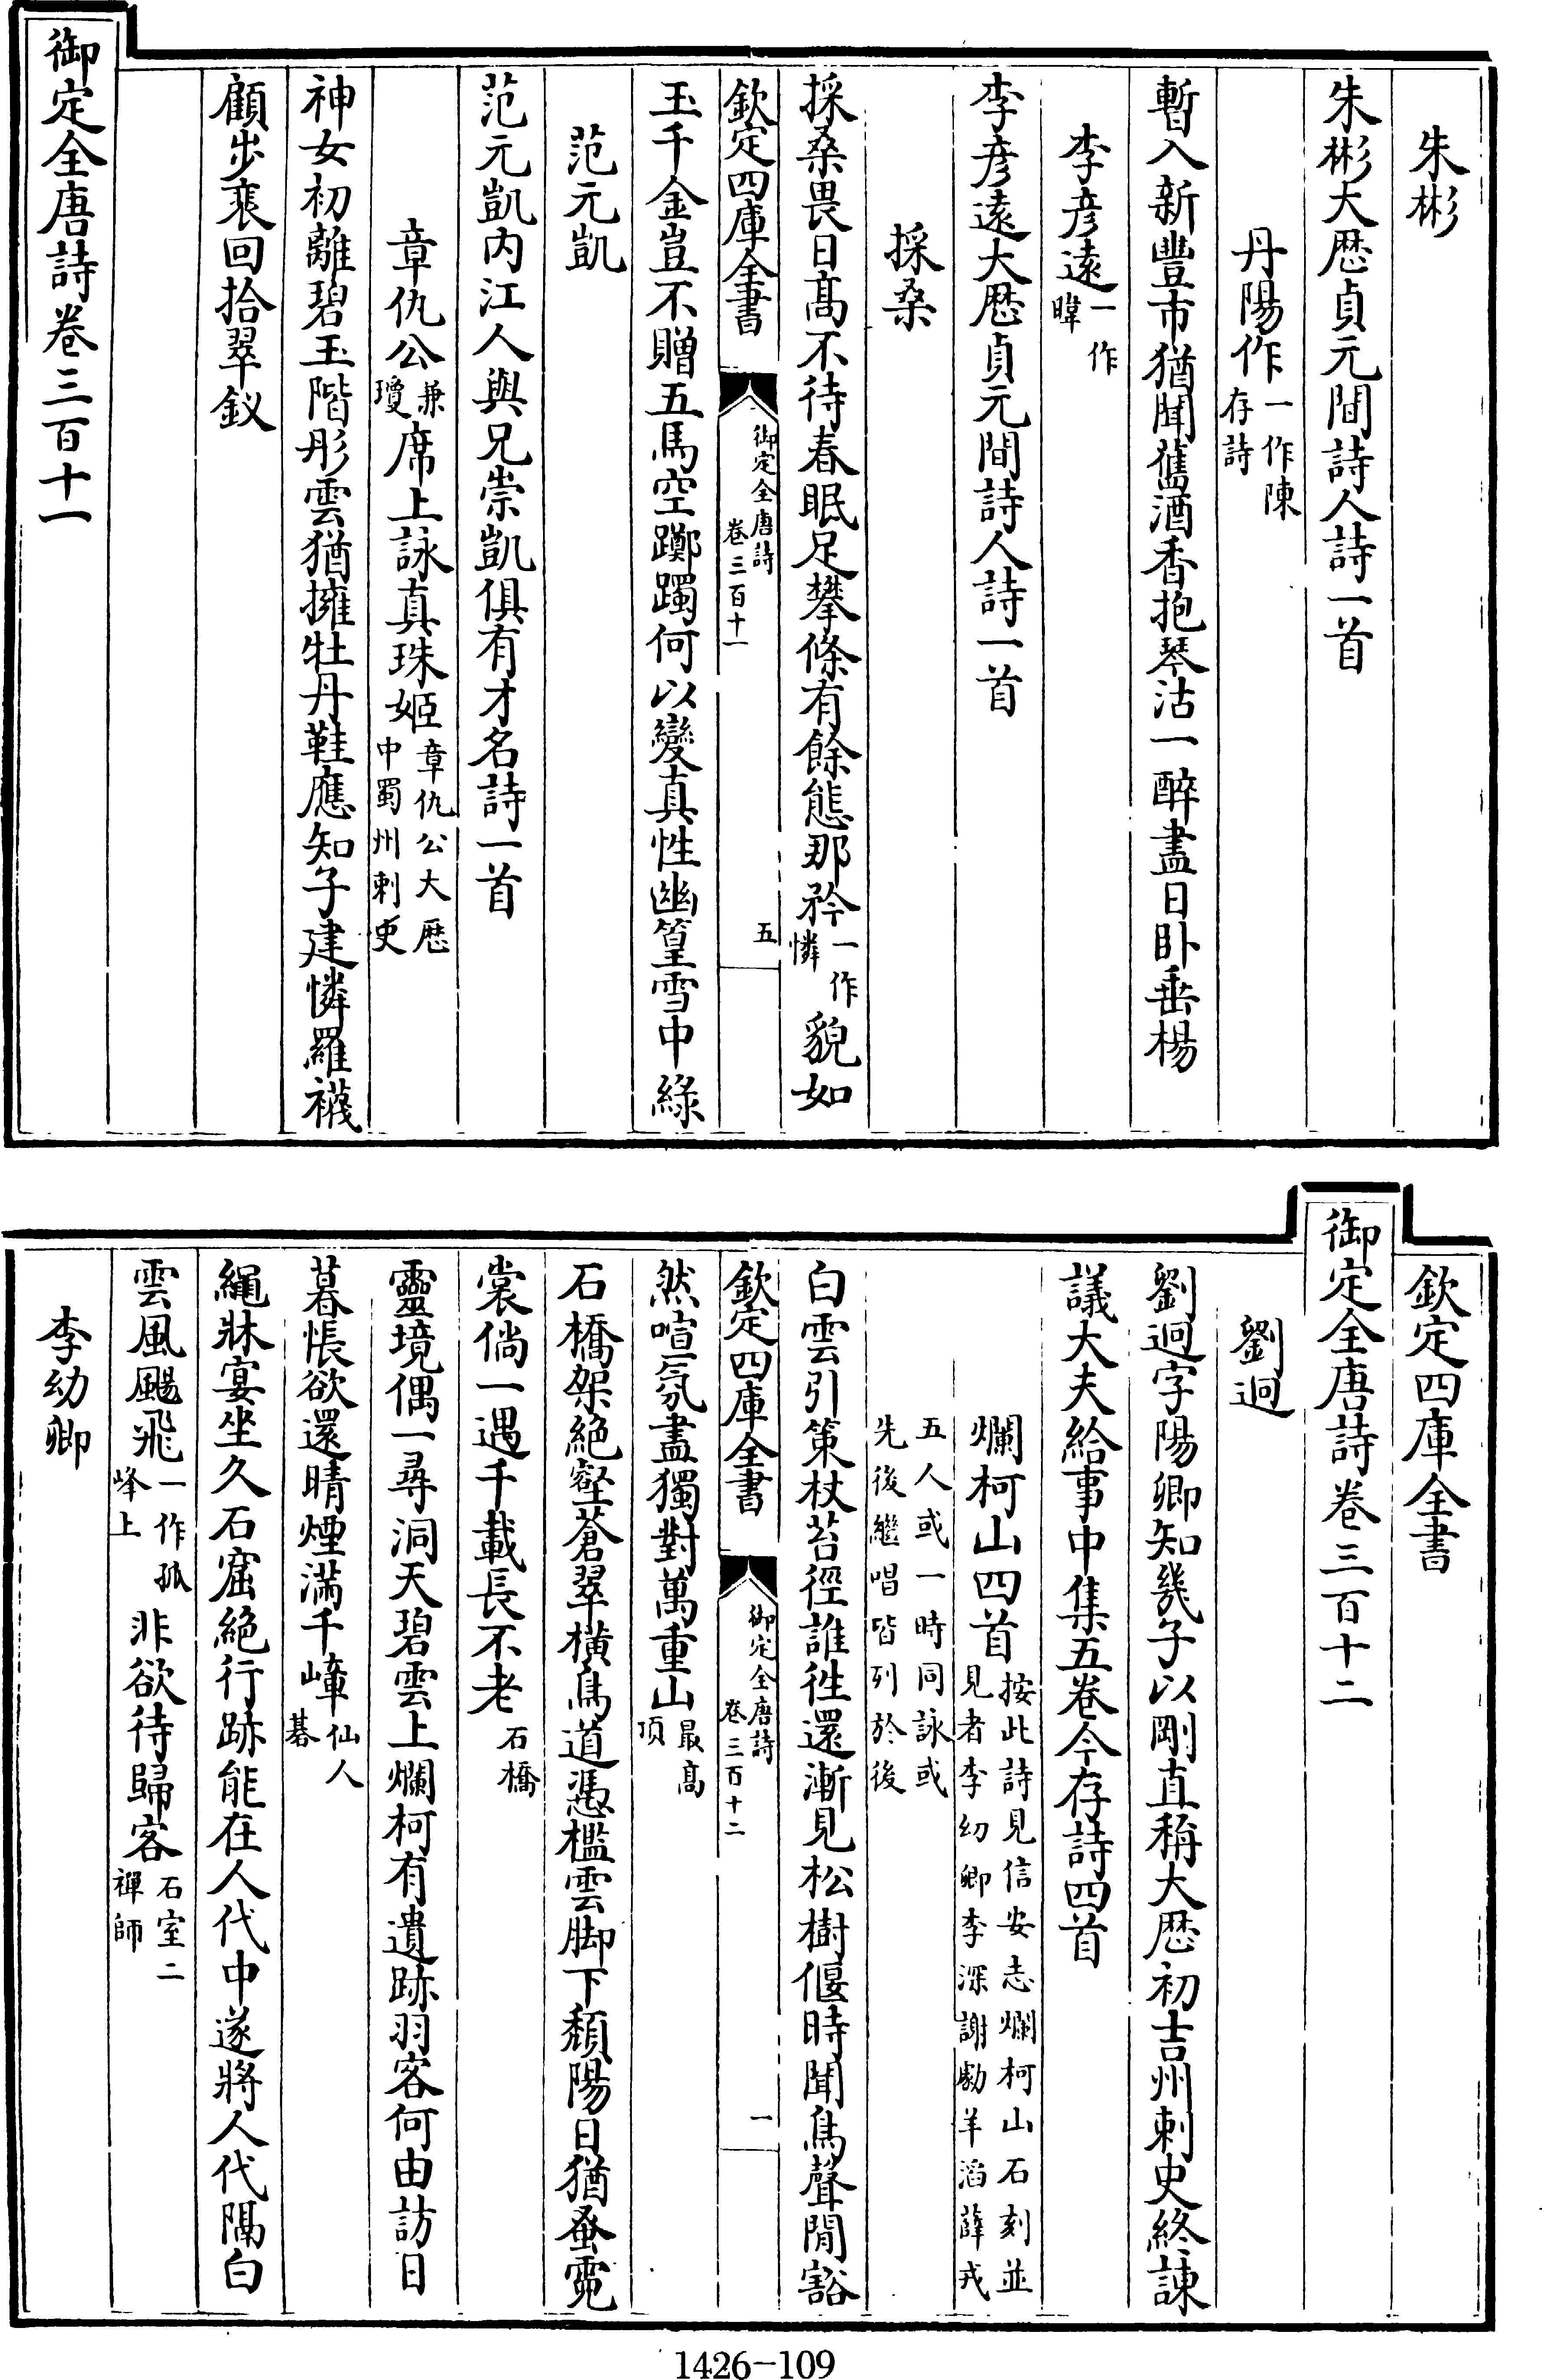 朱彬
朱彬大歴貞元間詩人詩一首
丹陽作一作陳存詩
暫入新豐市猶聞舊酒香抱琴沽一醉盡日卧垂楊
李彥遠一作暐
李彥遠大歴貞元間詩人詩一首
採桑
採桑畏日髙不待春眠足攀條有餘態那矜一作憐貌如
欽定四庫全書
御定全唐詩
卷三百十一
五
玉千金豈不贈五馬空躑躅何以變真性幽篁雪中綠
范元凱
范元凱内江人與兄崇凱俱有才名詩一首
章仇公兼瓊席上詠真珠姬章仇公大歴中蜀州刺史
神女初離碧玉階彤雲猶擁牡丹鞋應知子建憐羅襪
顧步裵回拾翠釵
御定全唐詩卷三百十一
欽定四庫全書
御定全唐詩卷三百十二
劉迥
劉迥字陽卿知幾子以剛直稱大歴初吉州刺史終諌
議大夫給事中集五卷今存詩四首
爛柯山四首按此詩見信安志爛柯山石刻並見者李幼卿李深謝勮羊滔薛戎
五人或一時同詠或先後繼唱皆列於後
白雲引策杖苔徑誰徃還漸見松樹偃時聞鳥聲閒豁
欽定四庫全書
御定全唐詩
卷三百十二
一
然喧氛盡獨對萬重山最髙頂
石橋架絶壑蒼翠橫鳥道憑檻雲脚下頽陽日猶蚤霓
裳倘一遇千載長不老石橋
靈境偶一尋洞天碧雲上爛柯有遺跡羽客何由訪日
暮悵欲還晴煙滿千嶂仙人碁
繩牀宴坐久石窟絶行跡能在人代中遂將人代隔白
雲風颺飛一作孤峰上非欲待歸客石室二禪師
李幼卿
1426-109